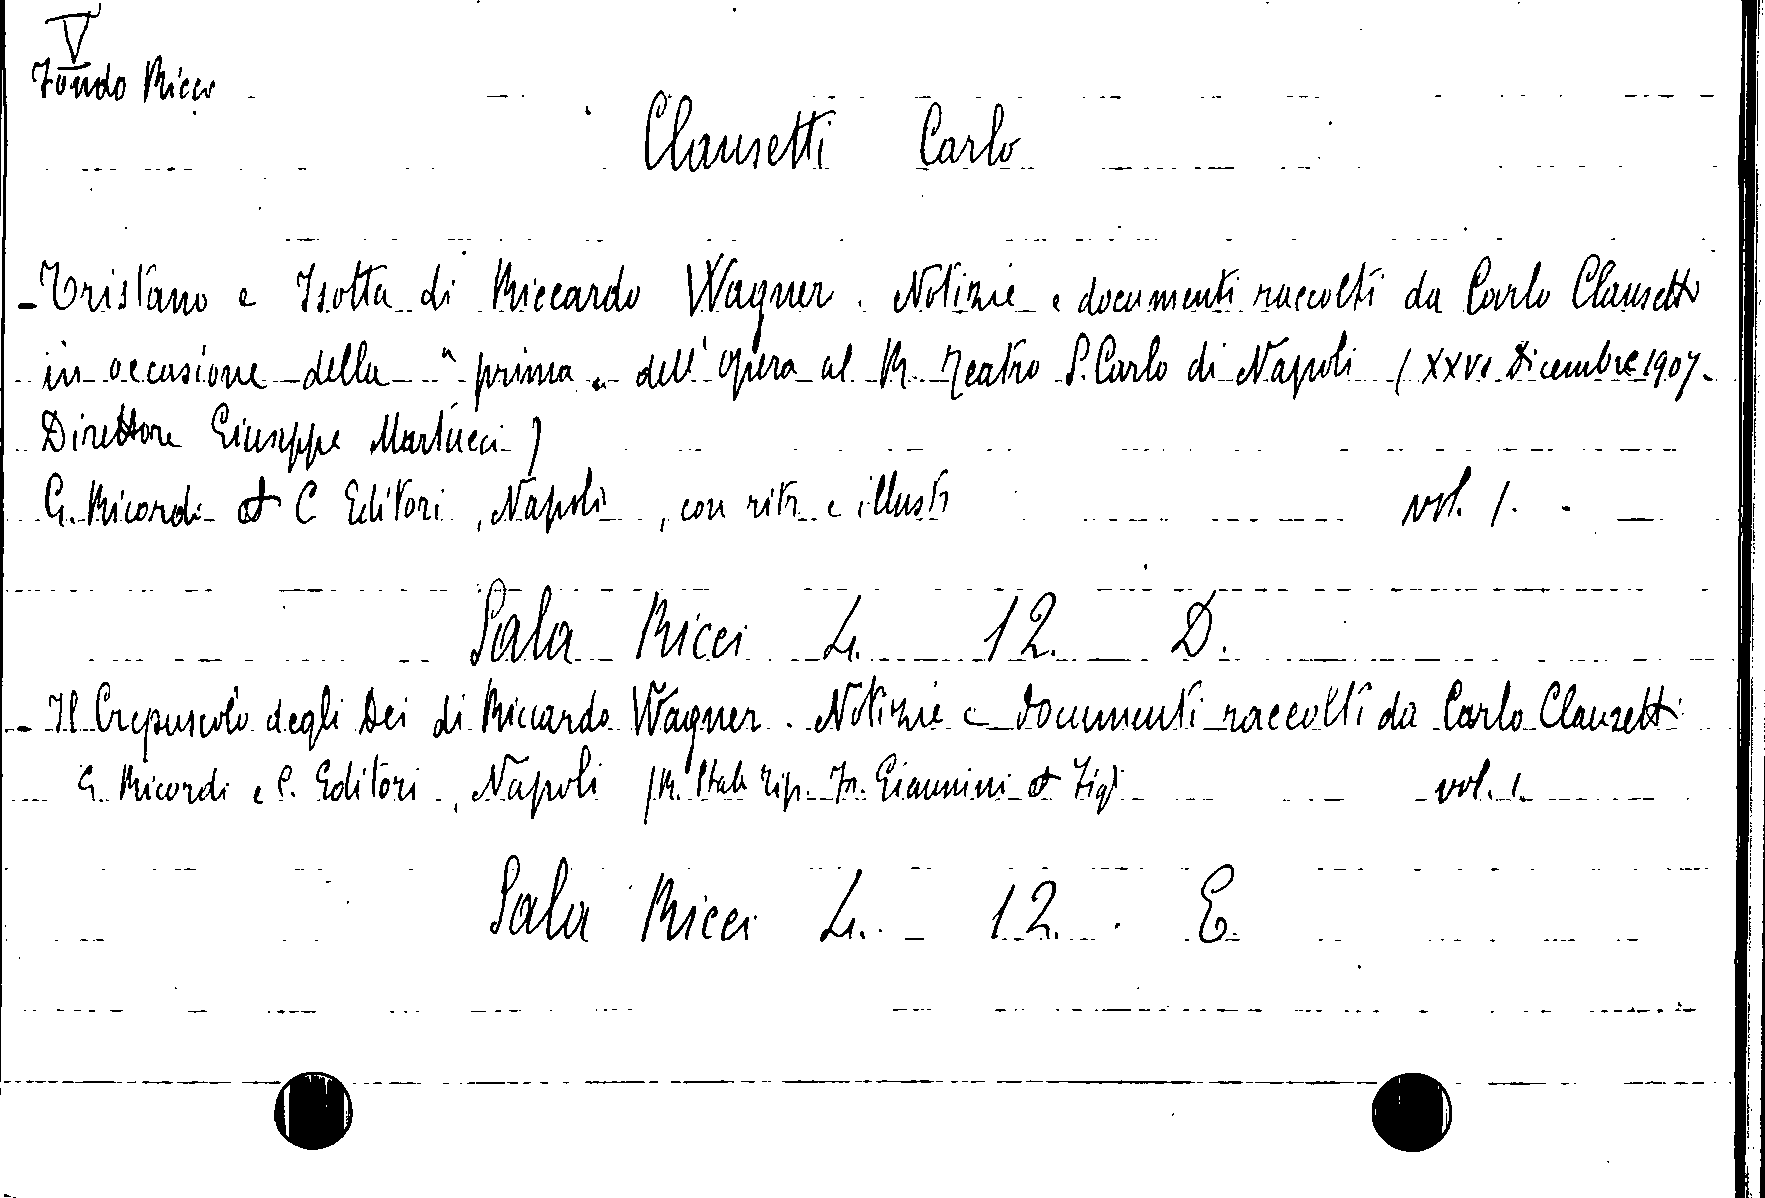 V
Fondo Ricci
Clausetti Carlo
- Tristano e Isotta di Riccardo Wagner. Notizie e documenti raccolti da Carlo Clausetti
in occasione della "prima" dell'opera al R. Teatro S. Carlo di Napoli (XXVI Dicembre 1907-
Direttore Giuseppe Martucci)
G. Ricordi & C Editori, Napoli, con ritr e illustr vol. 1.
Sala Ricci L. 12. D.
- Il Crepuscolo degli Dei di Riccardo Wagner. Notizie e documenti raccolti da Carlo Clausetti
G. Ricordi e C. Editori, Napoli (R. Stab Tip. Fr. Giannini & Figi vol. 1.
Sala Ricci L. 12. E.